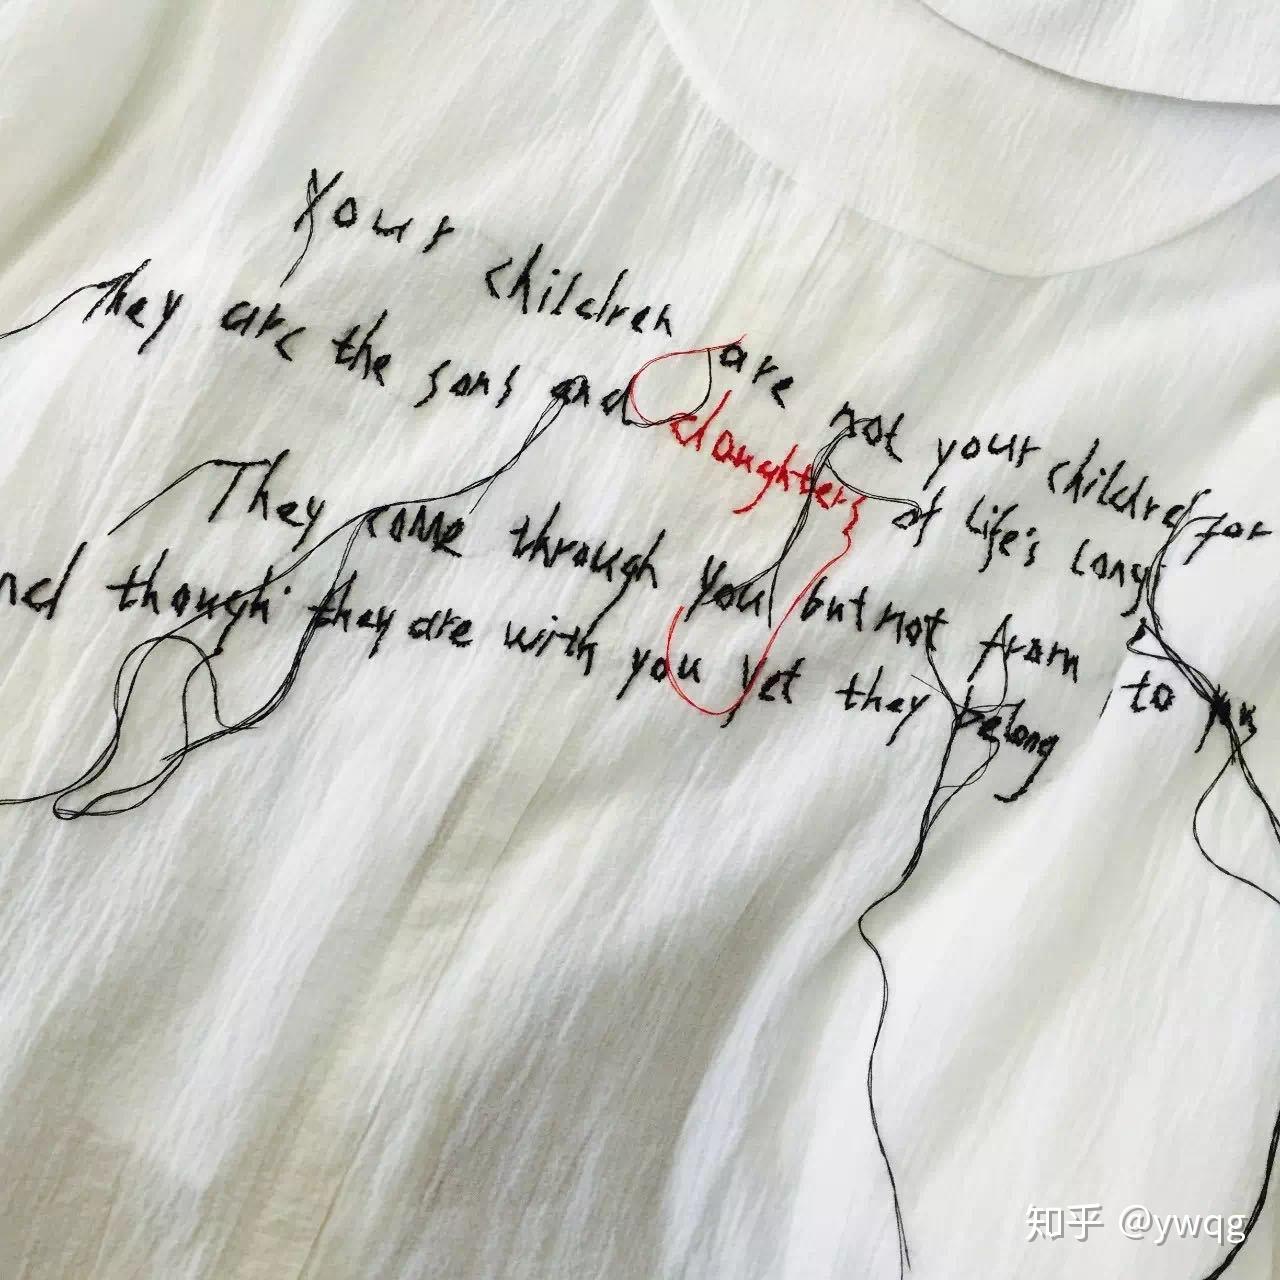 Your children are not your children for
They are the sons and daughters of life's long
They come through you but not from
nd though they are with you yet they belong to you
知乎 @ywqg